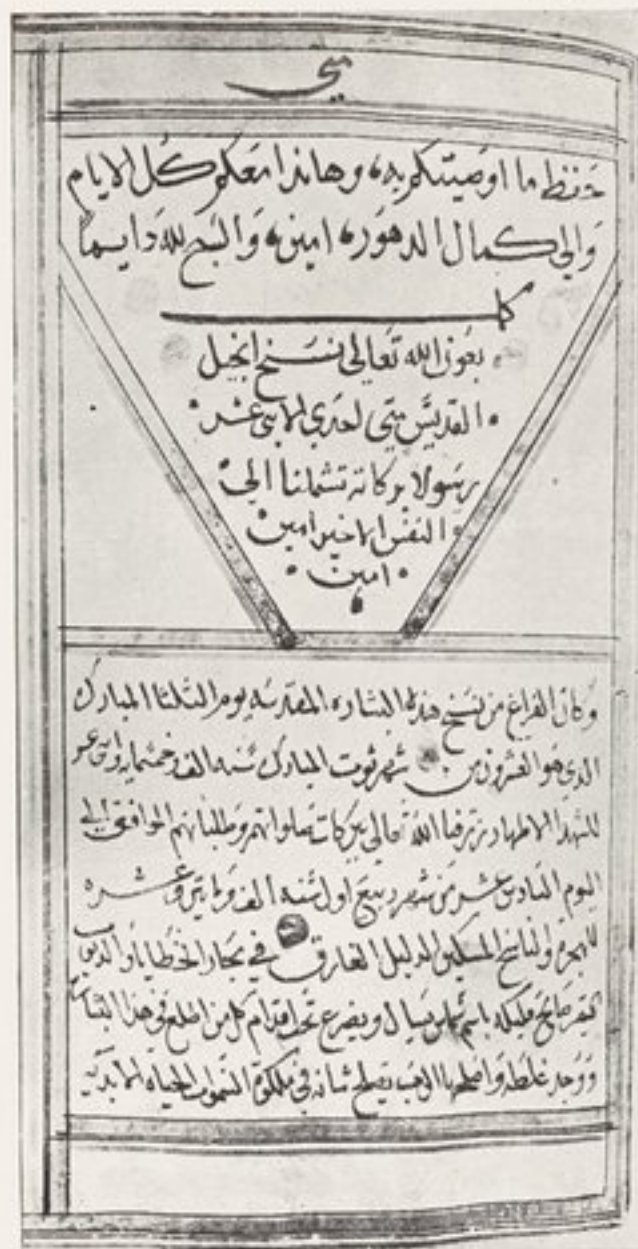 متي
حفظ ما اوصيتكم به، وهانذا معكم كل الايام
والي كمال الدهور، امين، والسبح لله دايما
كمل
بعون الله تعالي نسخ انجيل
القديس متي احدي الاثني عشر
رسولا بركاته تشملنا الي
النفس الاخير امين
امين
وكان الفراغ من نسخ هذه البشاره المقدسه يوم الثلثا المبارك
الذي هو العشرون من شهر توت المبارك سنه الف وخمسمايه واثني عشر
للشهدا الاطهار يرزقنا الله تعالي بركات صلواتهم وطلباتهم الموافق الي
اليوم السادس عشر من شهر ربيع اول سنه الف ومايتين وعشره
للهجرة والناسخ المسكين الذليل الغارق في بحار الخطايا والذنوب
الحقير باسم شماس ويضرع تحت اقدام كل من اطلع في هذا الكتاب
ووجد غلطه واصلحها الرب يصلح شانه في ملكوة السموات الحياه الابديه